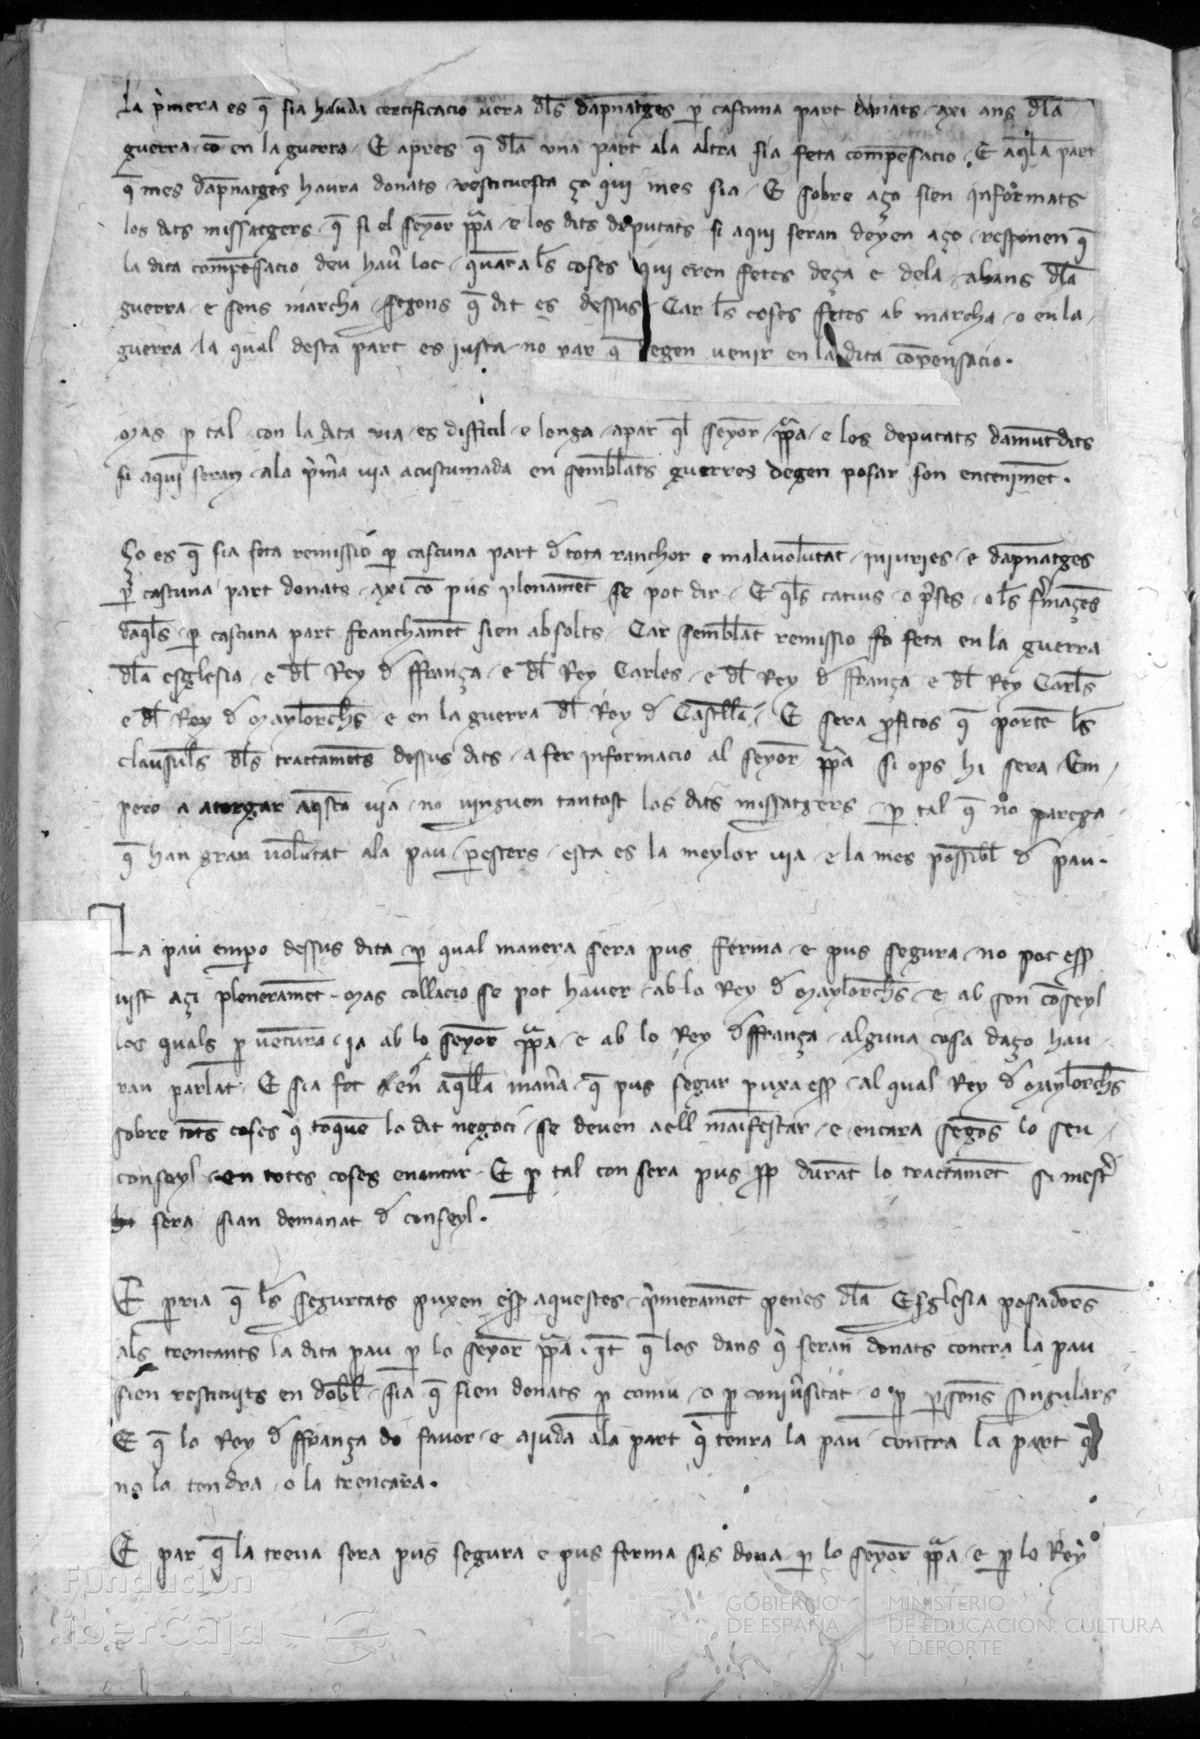 La p̀mera es q̄ sia hauda certificacio vera dl̄s dapnatges p̱ cascuna part donats, axi ans dl̄a
guerra, cō en la guerra, E apres q̄ dl̄a vna part ala altra sia feta compēsacio, E aq̄lla part
q̄ mes dapnatges haura donats, restituesca ço qui mes sia, E sobre aço sien informats
los dits missatgers, q̄ si el seyōr pp̄a, e los dits deputats si aqui seran deyen aço, responen q̄
la dita compēsacio deu hau̓ loc, quāt a l̄s coses qui eren fetes deça e dela, abans dl̄a
guerra, e sens marcha, segons q̄ dit es dessus Car l̄s coses fetes ab marcha, o en la,
guerra, la qual desta part es iusta, no par q̄ degen venir en la dita cōpensacio.
Mas p̱ tal, con la dita via, es difficil, e longa, apar q̄l seyōr pp̄a, e los deputats damūt dits
si aqui seran, ala p̀m̄a via acustumada en semblāts guerres degen posar son enteniment.
Ço es q̄ sia feta remissio p̱ cascuna part d̄ tota ranchor e malavolūtat, iniuries, e dapnatges
p̱ cascuna part donats, axi cō pus plenamēt se pot dir, E q̄ls catius, o p̄ses, o l̄s fr̄maçēs
daq̄ls, p̱ cascuna part franchamēt sien absolts, Car semblāt remissio fo feta en la guerra
dl̄a esglesia, e dl̄ Rey d̄ ffrança, e dl̄ Rey Carles, e dl̄ Rey d̄ ffrança e dl̄ Rey Carl̄s
e dl̄ Rey d̄ Maylorch̄s, e en la guerra dl̄ Rey d̄ Castell̄a, E sera p̱fitos q̄ portē l̄s
clausul̄s dl̄s tractamēts dessus dits, a fer informacio al seyōr pp̄a si ops hi sera, Em,
pero a atorgar aq̄sta via, no vinguen tantost los dits missatgers, p̱ tal q̄ no parega
q̄ han gran volūtat ala pau, p̱ esters, esta es la meylor via, e la mes possibl̄ d̄ pau.
La pau emp̱o dessus dita, p̱ qual manera sera pus ferma, e pus segura, no pot eſſ̱
vist açi plenerament, Mas collacio se pot haver, ab lo Rey d̄ Maylorch̄s, e ab son cōseyl
los quals p̱ ventura, ia ab lo seyōr pp̄a, e ab lo Rey d̄ ffrança, alguna cosa daço hau
ran parlat, E sia fet en aq̄lla man̄a, q̄ pus segur puxa eſſ̱, al qual Rey d̄ Maylorch̄s
sobre totes coses q̀ toquē lo dit negoci, se deuen a ell manifestar, e encara segōs lo seu,
conseyl, en totes coses enantar, E p̱ tal con sera pus pp̱ durāt lo tractamēt si mest̓
sera sian demanat d̄ conseyl.
E p̱ria q̄ l̄s seguretats puxen eſſ̱ aquestes, p̀meramēt penes dl̄a Esglesia posadors
al̄s trencants la dita pau p̱ lo seyōr pp̄a, It̄ q̄ los dans q̀ seran donats contra la pau
sien restituits en dobl̄, sia q̄ sien donats p̱ comu, o p̱ vniu̓sitat, o p̱ p̱sones singulars
E q̄ lo Rey d̄ ffrança do favor, e aiuda ala part q̀ tenra la pau, contra la part q̀
no la tendra, o la trencara.
E par q̄ la treua sera pus segura e pus ferma sis dona p̱ lo seyōr pp̄a, e p̱ lo Rey
Fundación
iberCaja
GOBIERNO
DE ESPAÑA
MINISTERIO
DE EDUCACIÓN, CULTURA
Y DEPORTE